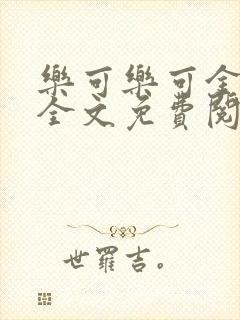 樂可樂可全
全文免費閱
世羅吉。